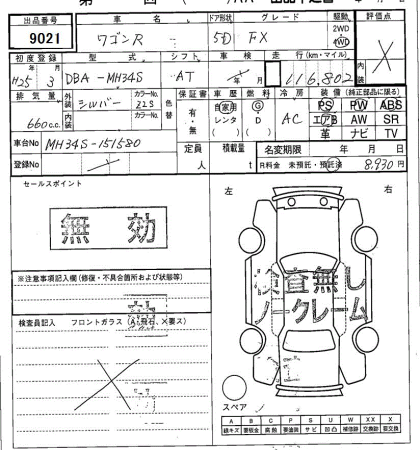 出品番号 車名 ドア形状 グレード 駆動 評価点
9021 ワゴンR 5D FX 2WD 4WD
初度登録 型式 シフト 車検 走行(km・マイル) 内装
H25年 3月 DBA-MH34S AT 年 月 116,802
排気量 外装 シルバー カラーNo. Z2S 色替 保証書 車歴 燃料 冷房 装備(純正部品に限る)
660c.c. 内装 カラーNo. 有・無 自家用 レンタ ( ) G D ( ) AC PS PW ABS
エアB AW SR
革 ナビ TV
車台No MH34S-151580 定員 人 積載量 t 名変期限 年 月 日
登録No R料金 未預託・預託済 8,930円
セールスポイント
無効
左 右
検査無し
ノークレーム
※注意事項記入欄(修復・不具合箇所および状態等)
検査員記入 フロントガラス(A、飛石、×要ス)
スペア
A B C P S U W XX X
線キズ 要板金 腐蝕 要塗装 サビ 凹凸 補修跡 交換跡 要交換